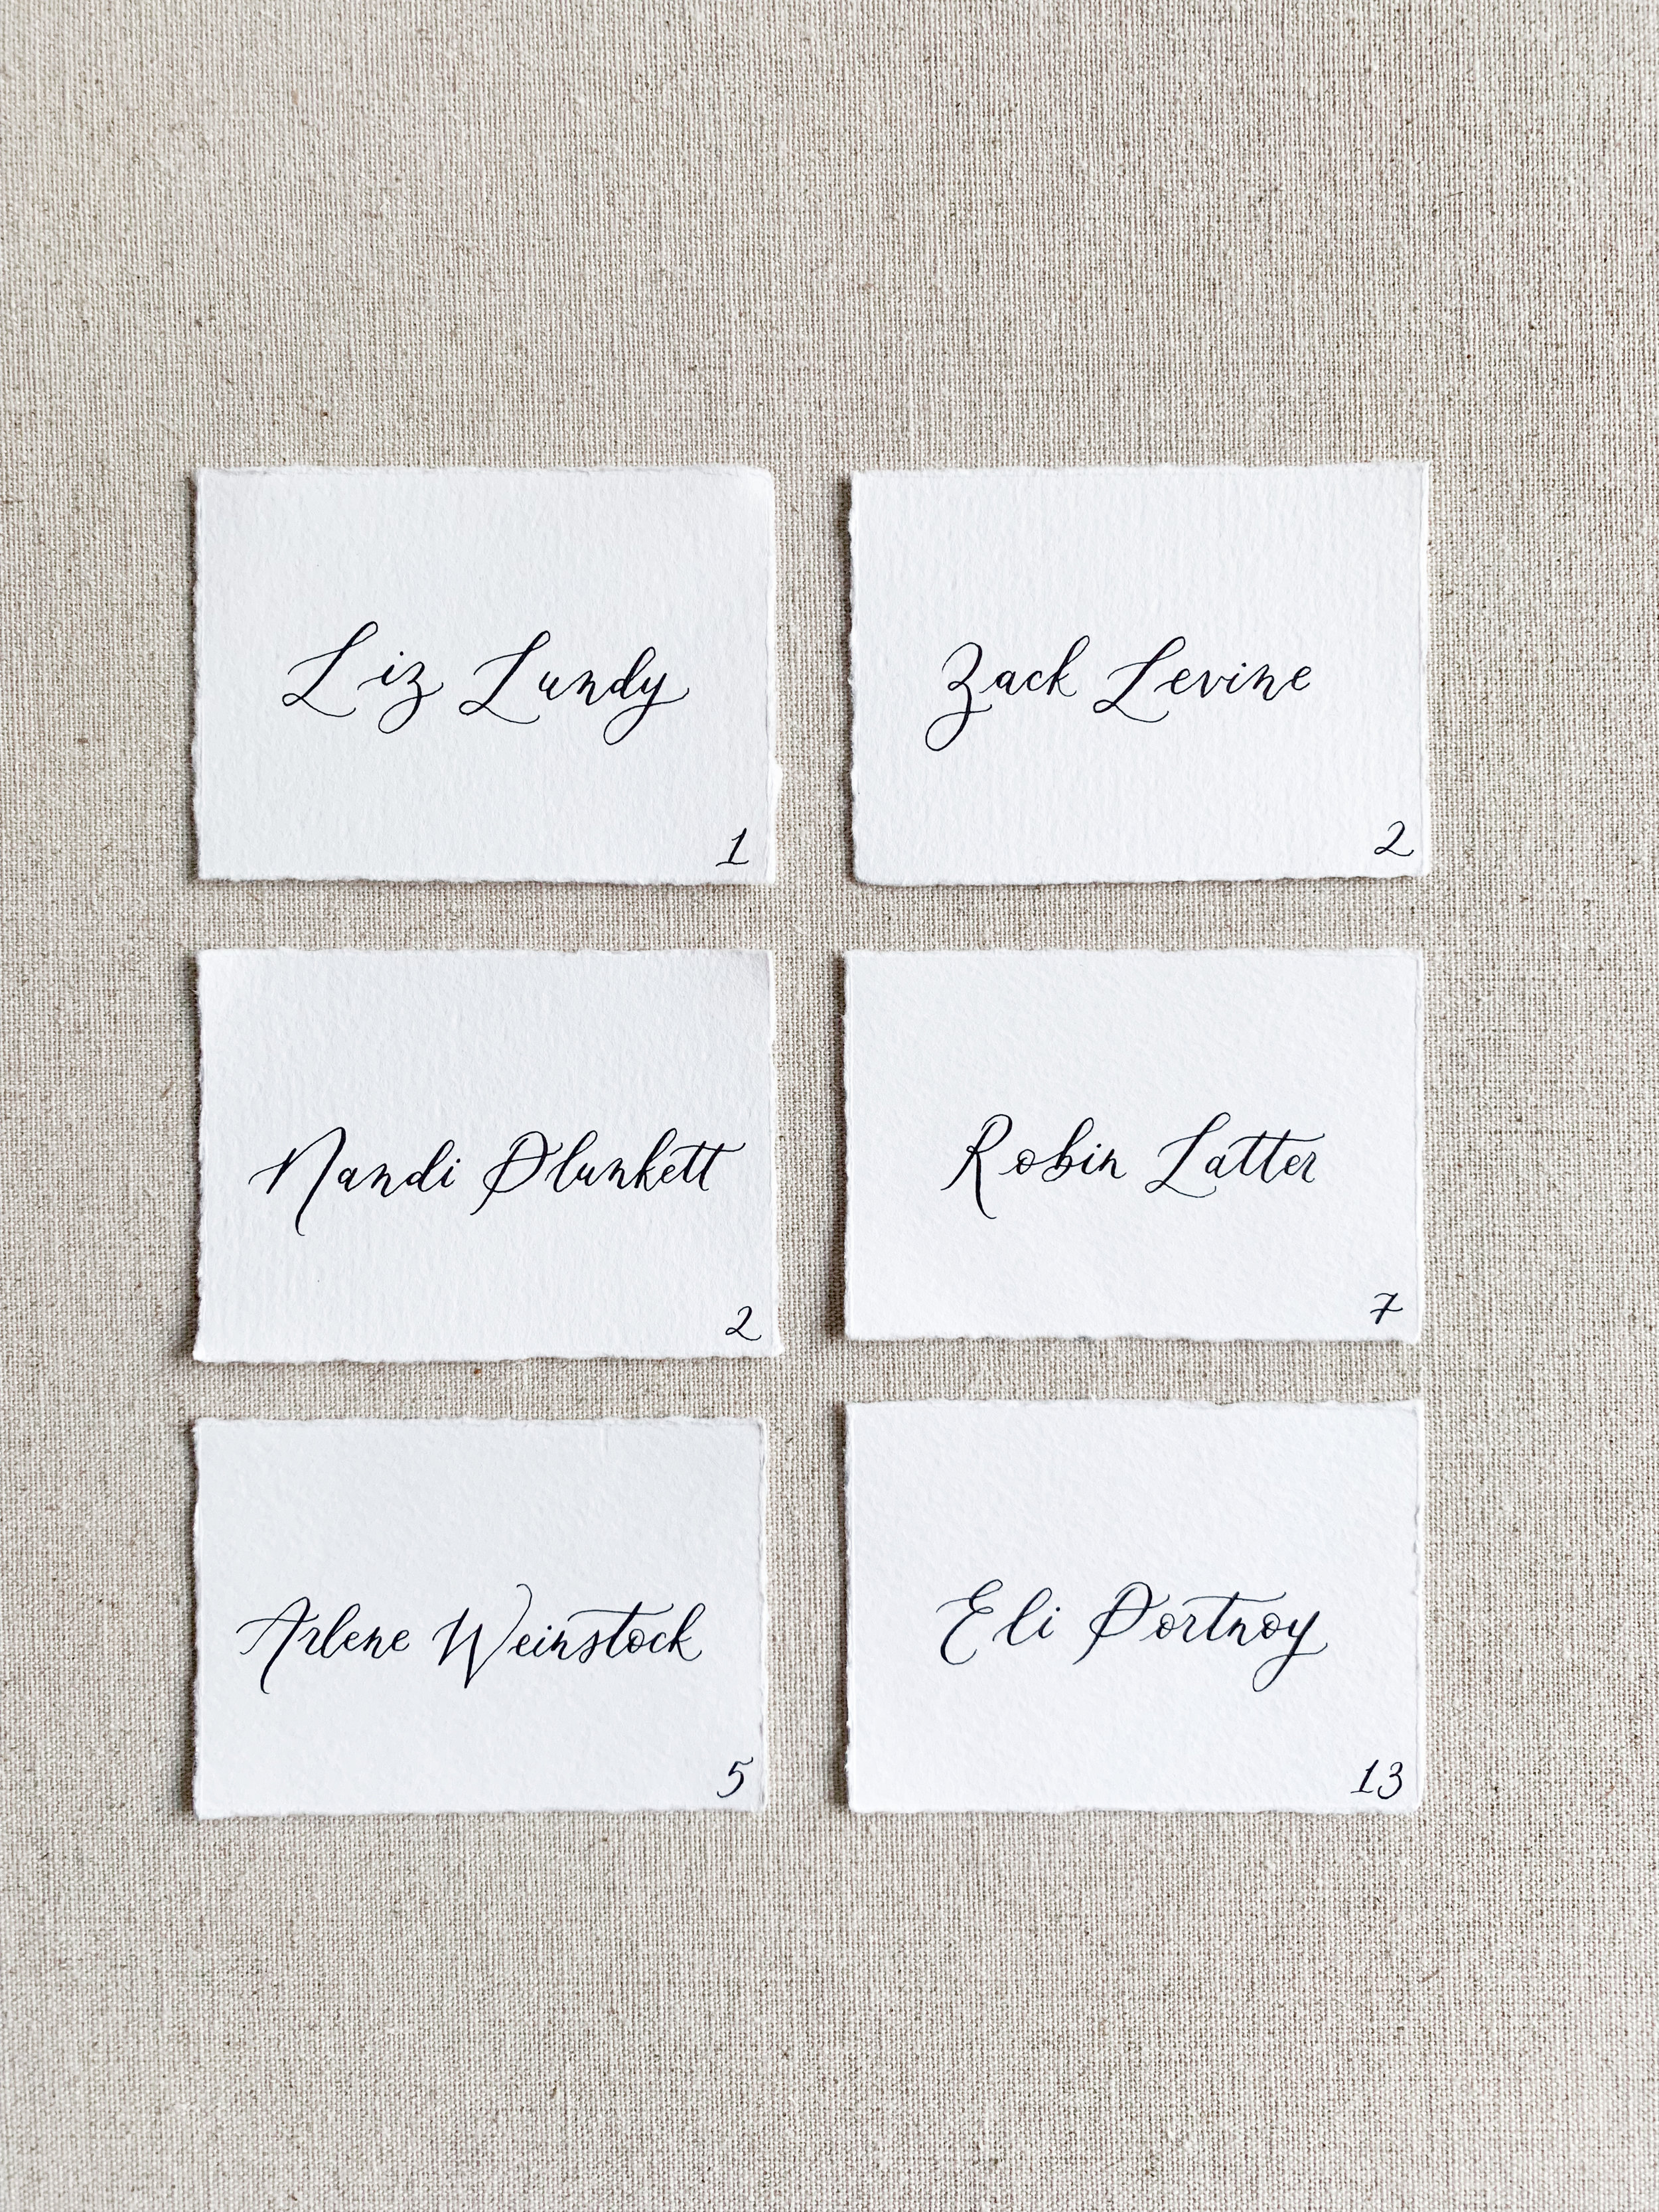 Liz Lundy
1
Zack Levine
2
Nandi Plunkett
2
Robin Latter
7
Arlene Weinstock
5
Eli Portnoy
13